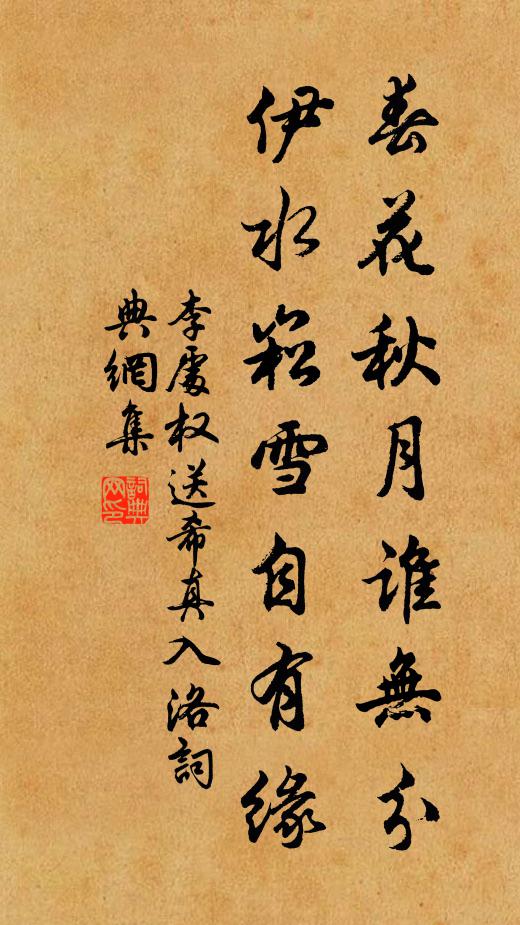 春花秋月谁無分
伊水嵩雪自有緣
李處权送希真入洛詞
典網集
詞典
网印